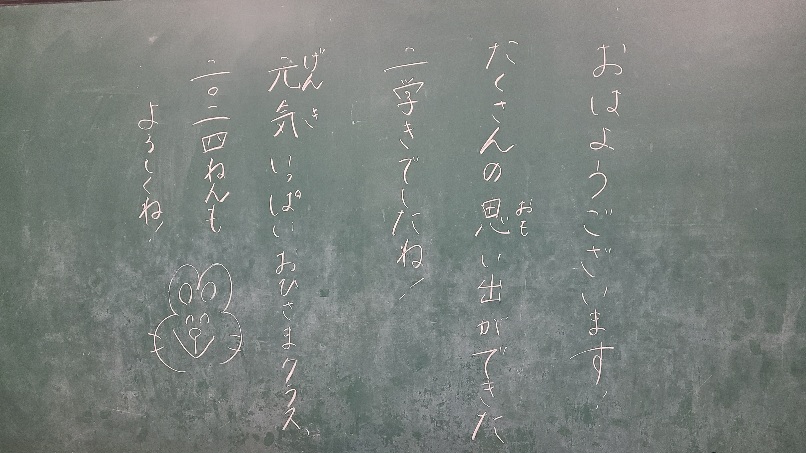 おはようございます!
たくさんの思い出ができた
おも
二学きでしたね!
元気いっぱいおひさまクラス、
げんき
二〇二四ねんも
よろしくね!